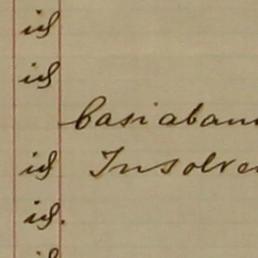 id
id
Casi aban
id Insolve
id.
id